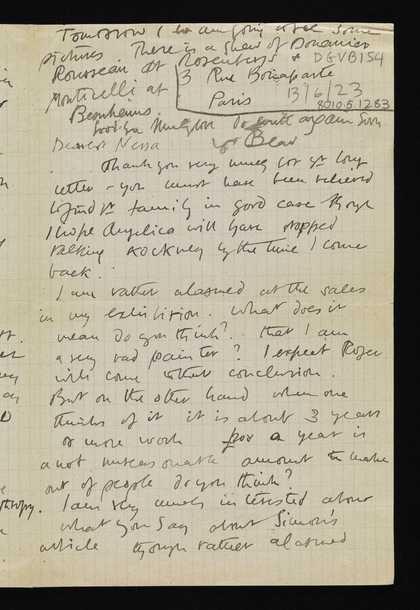 Tomorrow I am going to see some
pictures There is a show of Douanier
Rousseau at Rosenbergs & DGVB154
Monticelli at 3 Rue Bonaparte
Bernheims. Paris 13/6/23
8010.5.1283
Goodbye Much love do write again soon
yr Bear
Dearest Nessa
Thank you very much for yr long
letter – you must have been relieved
to find yr family in good case though
I hope Angelica will have stopped
talking Kockney by the time I come
back.
I am rather alarmed at the sales
in my exhibition. What does it
mean do you think? that I am
a very bad painter? I expect Roger
will come to that conclusion.
But on the other hand when one
thinks of it it is about 3 years
or more work for a year is
a not unreasonable amount to make
out of people do you think?
I am very much interested about
what you say about Simon's
article though rather alarmed